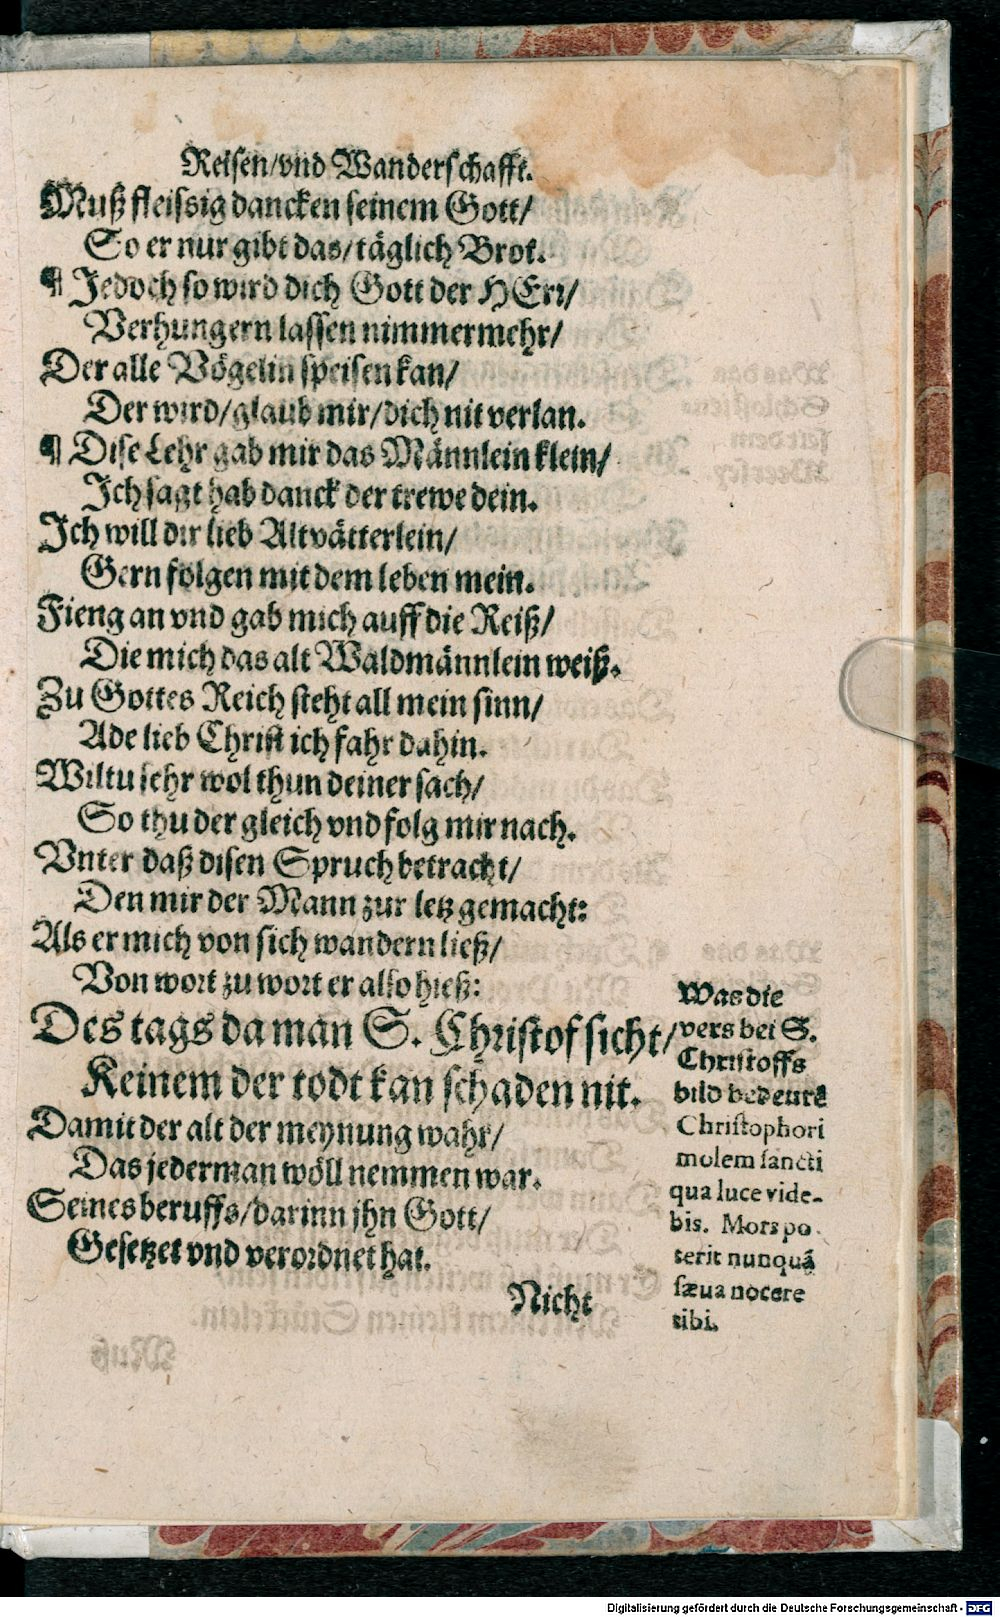 Reisen/vnd Wanderschafft.
Muß fleissig dancken seinem Gott/
So er nur gibt das/täglich Brot.
¶ Jedoch so wird dich Gott der HErr/
Verhungern lassen nimmermehr/
Der alle Vögelin speisen kan/
Der wird/glaub mir/dich nit verlan.
¶ Dise Lehr gab mir das Männlein klein/
Ich sagt hab danck der trewe dein.
Ich will dir lieb Altvätterlein/
Gern folgen mit dem leben mein.
Fieng an vnd gab mich auff die Reiß/
Die mich das alt Waldmännlein weiß.
Zu Gottes Reich steht all mein sinn/
Ade lieb Christ ich fahr dahin.
Wiltu sehr wol thun deiner sach/
So thu der gleich vnd folg mir nach.
Vnter daß disen Spruch betracht/
Den mir der Mann zur letz gemacht:
Als er mich von sich wandern ließ/
Von wort zu wort er also hieß:
Des tags da man S. Christof sicht/
Keinem der todt kan schaden nit.
Damit der alt der meynung wahr/
Das jederman wöll nemmen war.
Seines beruffs/darinn jhn Gott/
Gesetzet vnd verordnet hat.
Nicht
Was die
vers bei S.
Christoffs
bild bedeutẽ
Christophori
molem sancti
qua luce vide-
bis. Mors po
terit nunquã
sæua nocere
tibi.
Digitalisierung gefördert durch die Deutsche Forschungsgemeinschaft - DFG